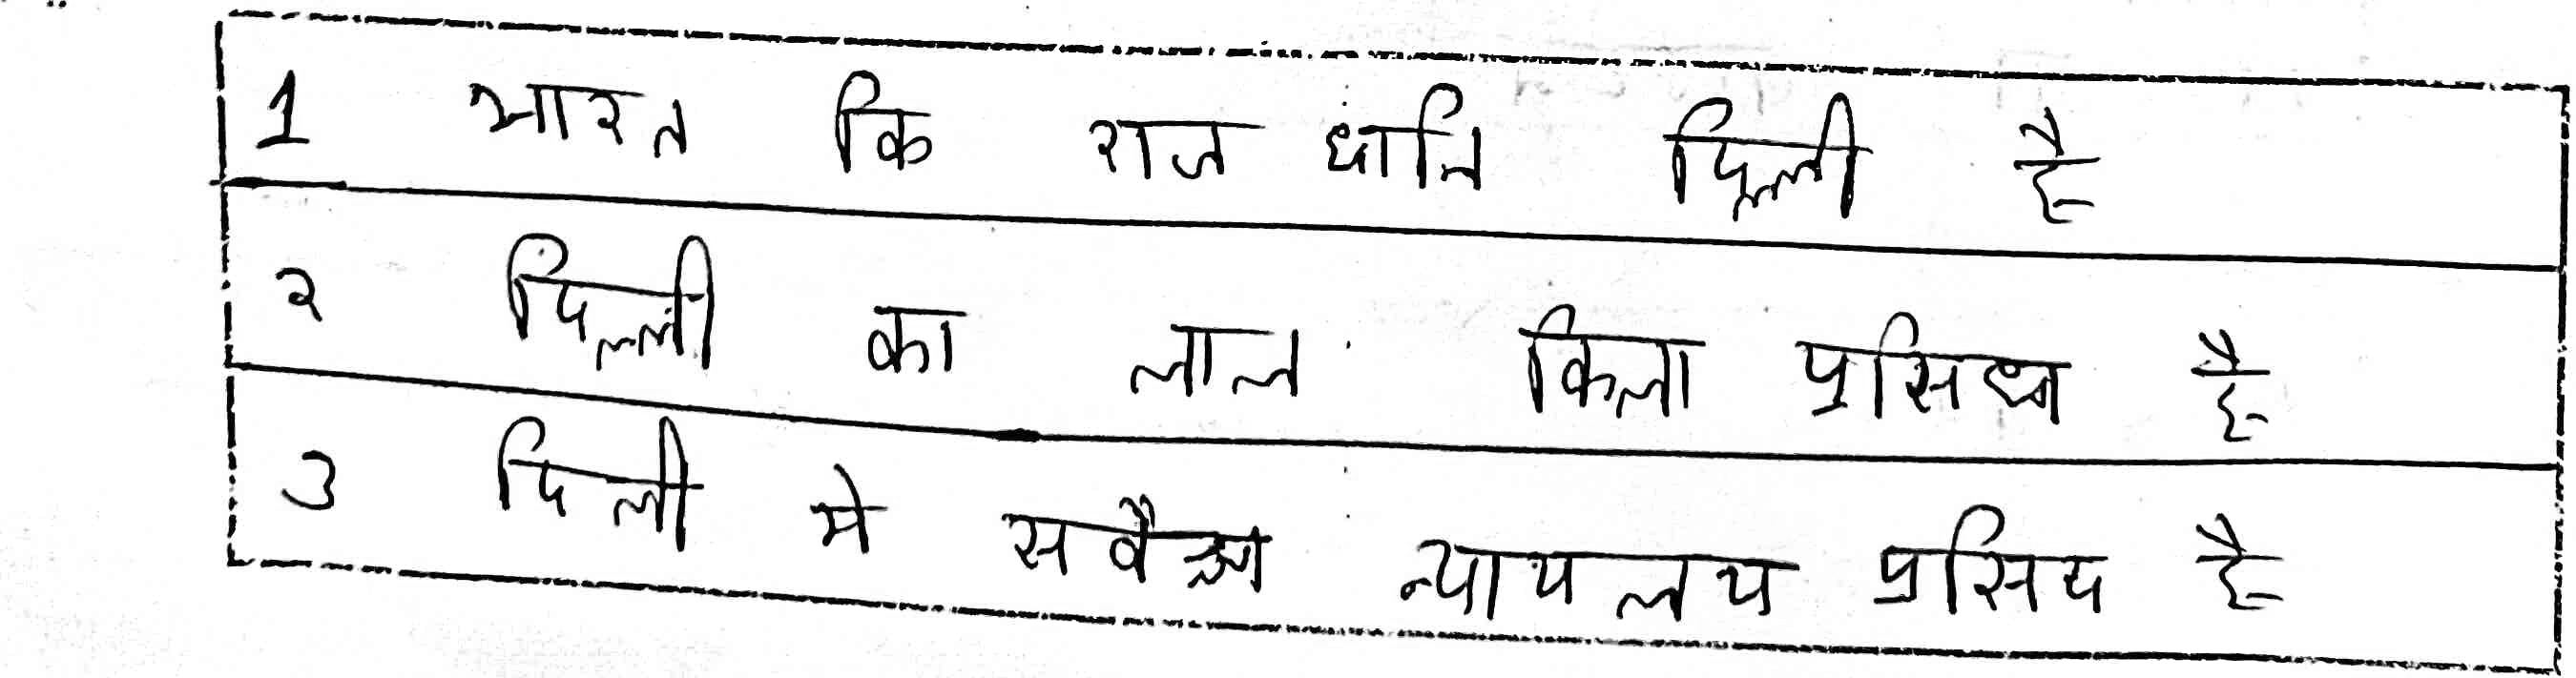 1 भारत कि राज धानि दिल्ली है
२ दिल्ली का लाल किला प्रसिध्ध है
3 दिली मे न्यायलय प्रसिद है